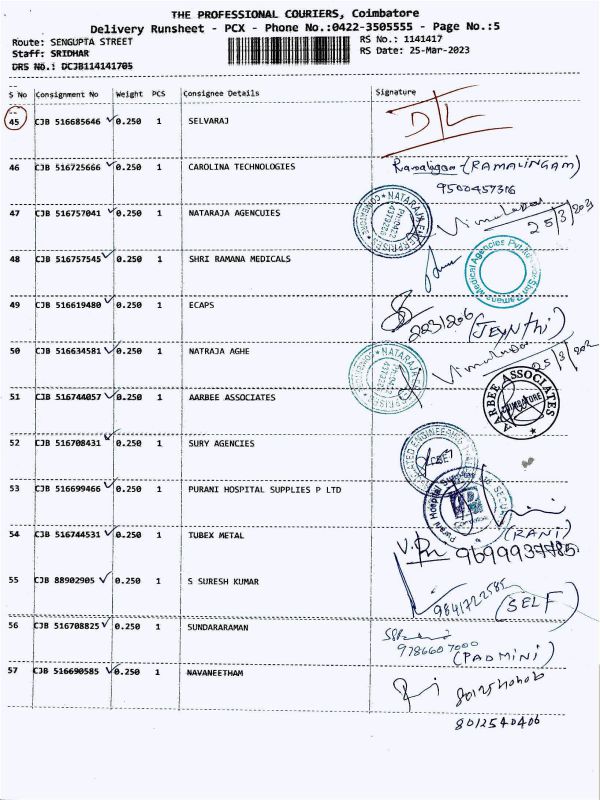 THE PROFESSIONAL COURIERS, Coimbatore
Delivery Runsheet - PCX - Phone No.:0422-3505555 - Page No.:5
Route: SENGUPTA STREET
RS No.: 1141417
Staff: SRIDHAR
RS Date: 25-Mar-2023
DRS No.: DCJB114141705
S No Consignment No Weight PCS Consignee Details Signature
45 CJB 516685646 0.250 1 SELVARAJ DL
46 CJB 516725666 0.250 1 CAROLINA TECHNOLOGIES Ramalingam (RAMALINGAM)
9500457316
47 CJB 516757041 0.250 1 NATARAJA AGENCUIES
25/3/2023
48 CJB 516757545 0.250 1 SHRI RAMANA MEDICALS
49 CJB 516619480 0.250 1 ECAPS
2231206 (JEYNthi)
50 CJB 516634581 0.250 1 NATRAJA AGHE
25/3/202
51 CJB 516744057 0.250 1 AARBEE ASSOCIATES
ARBEE ASSOCIATES
COIMBATORE
52 CJB 516708431 0.250 1 SURY AGENCIES
53 CJB 516699466 0.250 1 PURANI HOSPITAL SUPPLIES P LTD
(RANI)
54 CJB 516744531 0.250 1 TUBEX METAL
55 CJB 88902905 0.250 1 S SURESH KUMAR
9841722585 (SELF)
56 CJB 516708825 0.250 1 SUNDARARAMAN
9786607000
(PADMINI)
57 CJB 516690585 0.250 1 NAVANEETHAM
8012540406
8012540406